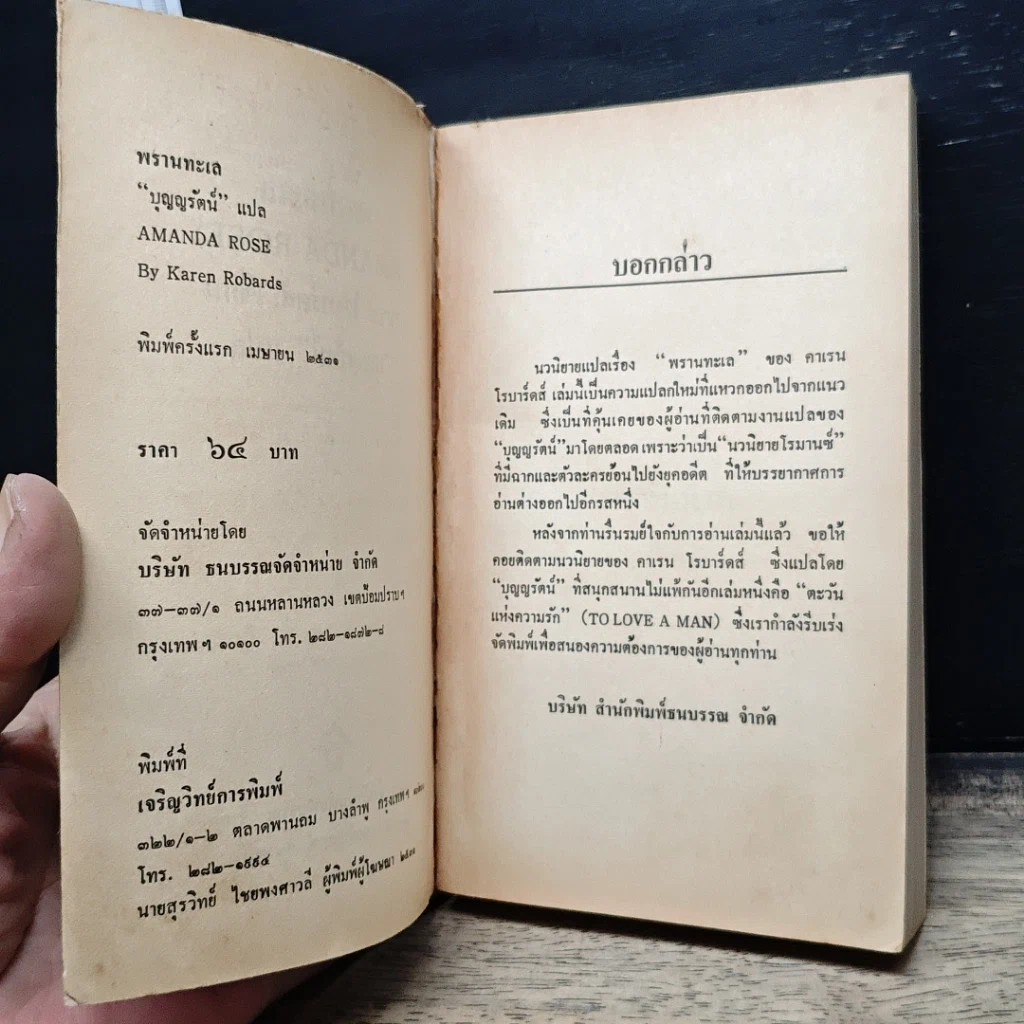 พรานทะเล
“บุญญรัตน์” แปล
AMANDA ROSE
By Karen Robards
พิมพ์ครั้งแรก เมษายน ๒๕๓๑
ราคา ๖๔ บาท
จัดจำหน่ายโดย
บริษัท ธนบรรณจัดจำหน่าย จำกัด
๓๗–๓๗/๑ ถนนหลานหลวง เขตป้อมปราบฯ
กรุงเทพฯ ๑๐๑๐๐ โทร. ๒๘๒–๑๘๗๒–๘
พิมพ์ที่
เจริญวิทย์การพิมพ์
๓๒๒/๑–๒ ตลาดพานถม บางลำพู กรุงเทพฯ
โทร. ๒๘๒–๑๙๙๔
นายสุรวิทย์ ไชยพงศาวลี ผู้พิมพ์ผู้โฆษณา ๒๕๓๑
บอกกล่าว
นวนิยายแปลเรื่อง “พรานทะเล” ของ คาเรน
โรบาร์ดส์ เล่มนี้เป็นความแปลกใหม่ที่แหวกออกไปจากแนว
เดิม ซึ่งเป็นที่คุ้นเคยของผู้อ่านที่ติดตามงานแปลของ
“บุญญรัตน์”มาโดยตลอด เพราะว่าเป็น“นวนิยายโรมานซ์”
ที่มีฉากและตัวละครย้อนไปยังยุคอดีต ที่ให้บรรยากาศการ
อ่านต่างออกไปอีกรสหนึ่ง
หลังจากท่านรื่นรมย์ใจกับการอ่านเล่มนี้แล้ว ขอให้
คอยติดตามนวนิยายของ คาเรน โรบาร์ดส์ ซึ่งแปลโดย
“บุญญรัตน์” ที่สนุกสนานไม่แพ้กันอีกเล่มหนึ่งคือ “ตะวัน
แห่งความรัก” (TO LOVE A MAN) ซึ่งเรากำลังรีบเร่ง
จัดพิมพ์เพื่อสนองความต้องการของผู้อ่านทุกท่าน
บริษัท สำนักพิมพ์ธนบรรณ จำกัด